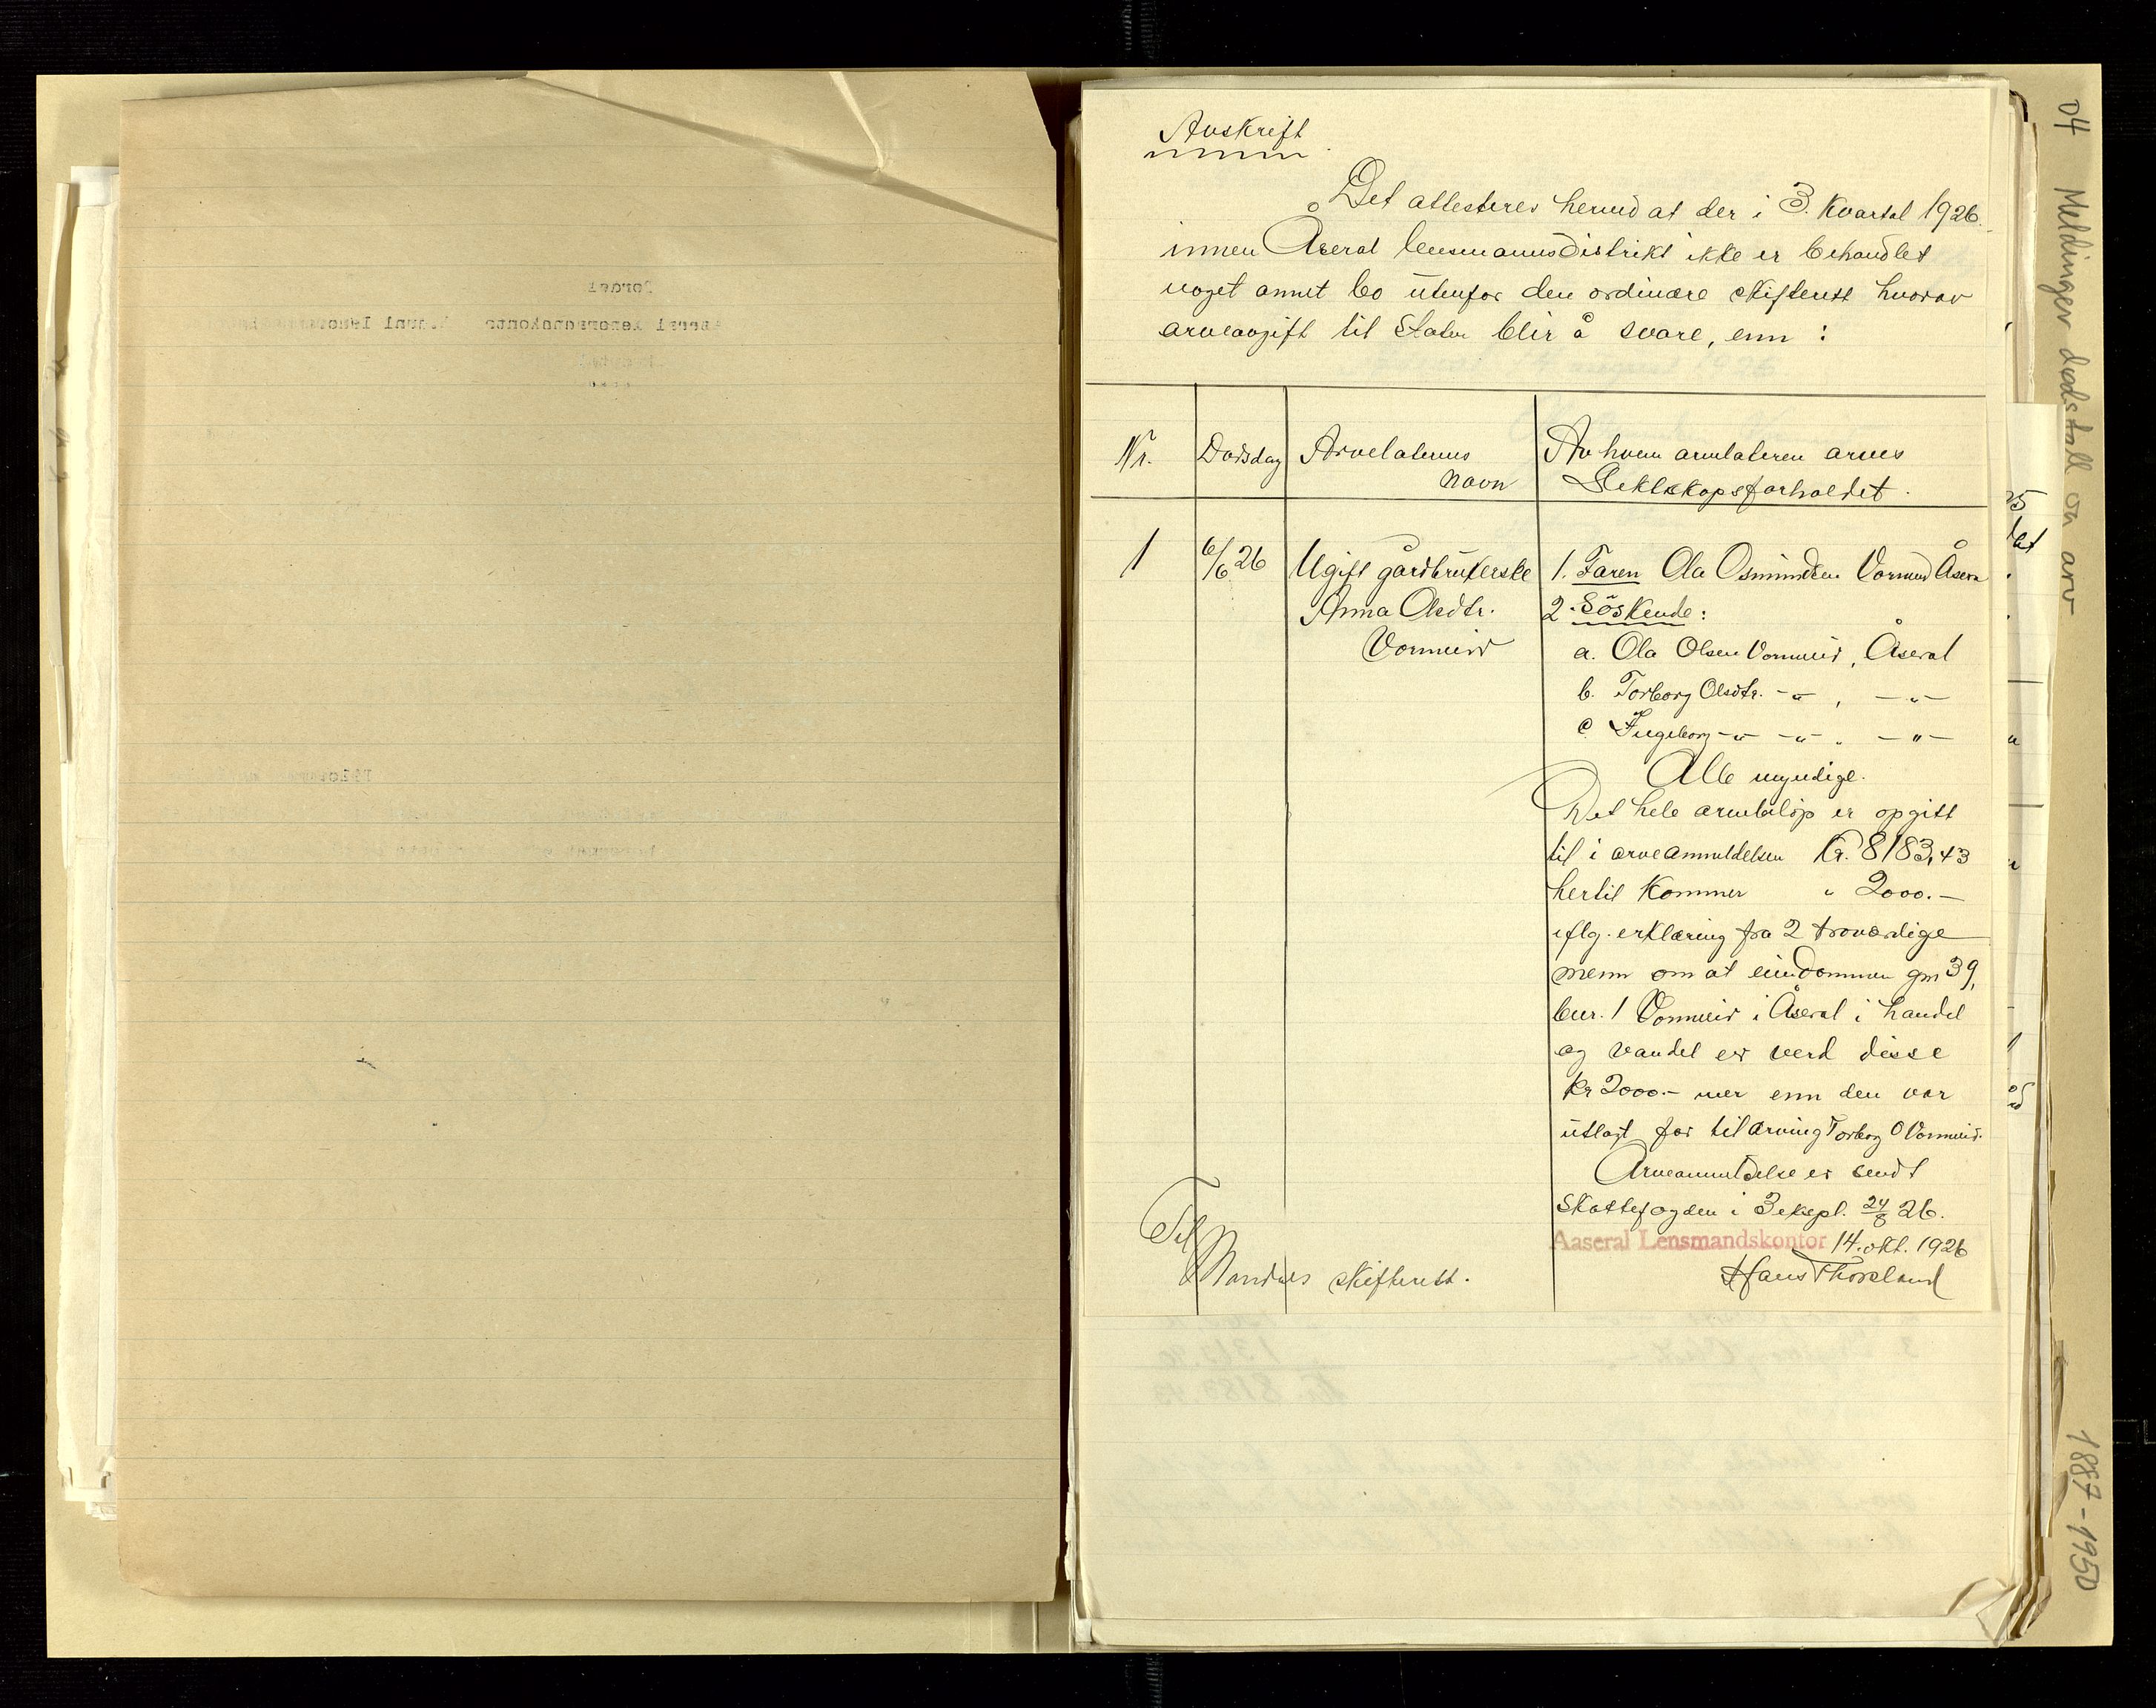 Avskrift
Det attesteres herved at der i 3. Kvartal 1926
innen Åseral lensmannsdistrikt ikke er behandlet
noget annet bo utenfor den ordinære skifterett hvorav
arveavgift til Staten blir å svare, enn :
Nr.
Dødsdag
Arvelaterens
navn
Av hvem arvelateren arves
Slektskapsforholdet.
1
6/6 26
Ugift gårdbrukerske
Anna Olsdtr.
Vormeid
1. Faren Ola Osmundsen Vormeid Åseral
2. Söskende :
a. Ola Olsen Vormeid, Åseral
b. Torborg Olsdtr. -"- , -"-
c Ingeborg -"- -"- , -"-
Alle myndige.
Det hele arvebeløp er opgitt
til i arveanmeldelsen Kr. 8183,43
hertil Kommer " 2000.-
iflg. erklæring fra 2 troverdige
menn om at eiendommen gnr 39,
bnr. 1 Vormeid i Åseral i handel
og vandel er verd disse
kr 2000.- mer enn den var
utlagt for til arving Torborg O Vormeid.
Arveanmeldelse er sendt
Skattefogden i 3 ekspl. 24/8 26.
Aaseral Lensmandskontor 14. okt. 1926
Hans Thorsland
Til
Mandals skifterett.
04 Meldinger dødsfall og arv
1887-1950